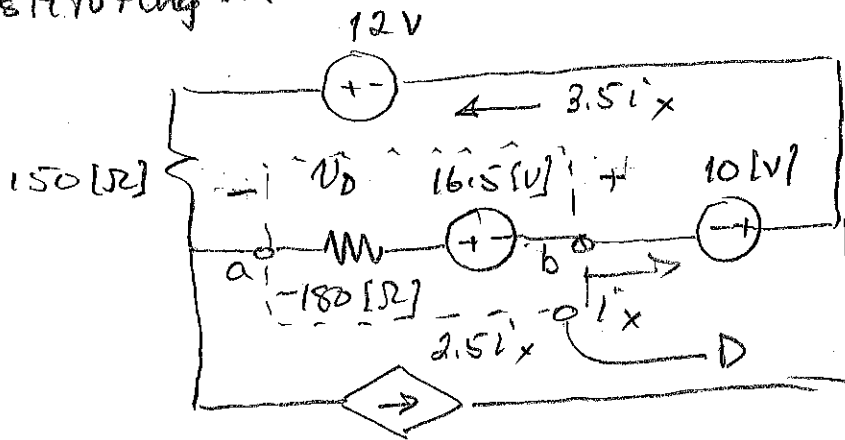 12V
+ -
← 3.5 i x
150 [Ω]
- v D 16.5 [V] + 10 [V]
+ - - +
a b
-180 [Ω]
2.5 i x i x
D
→